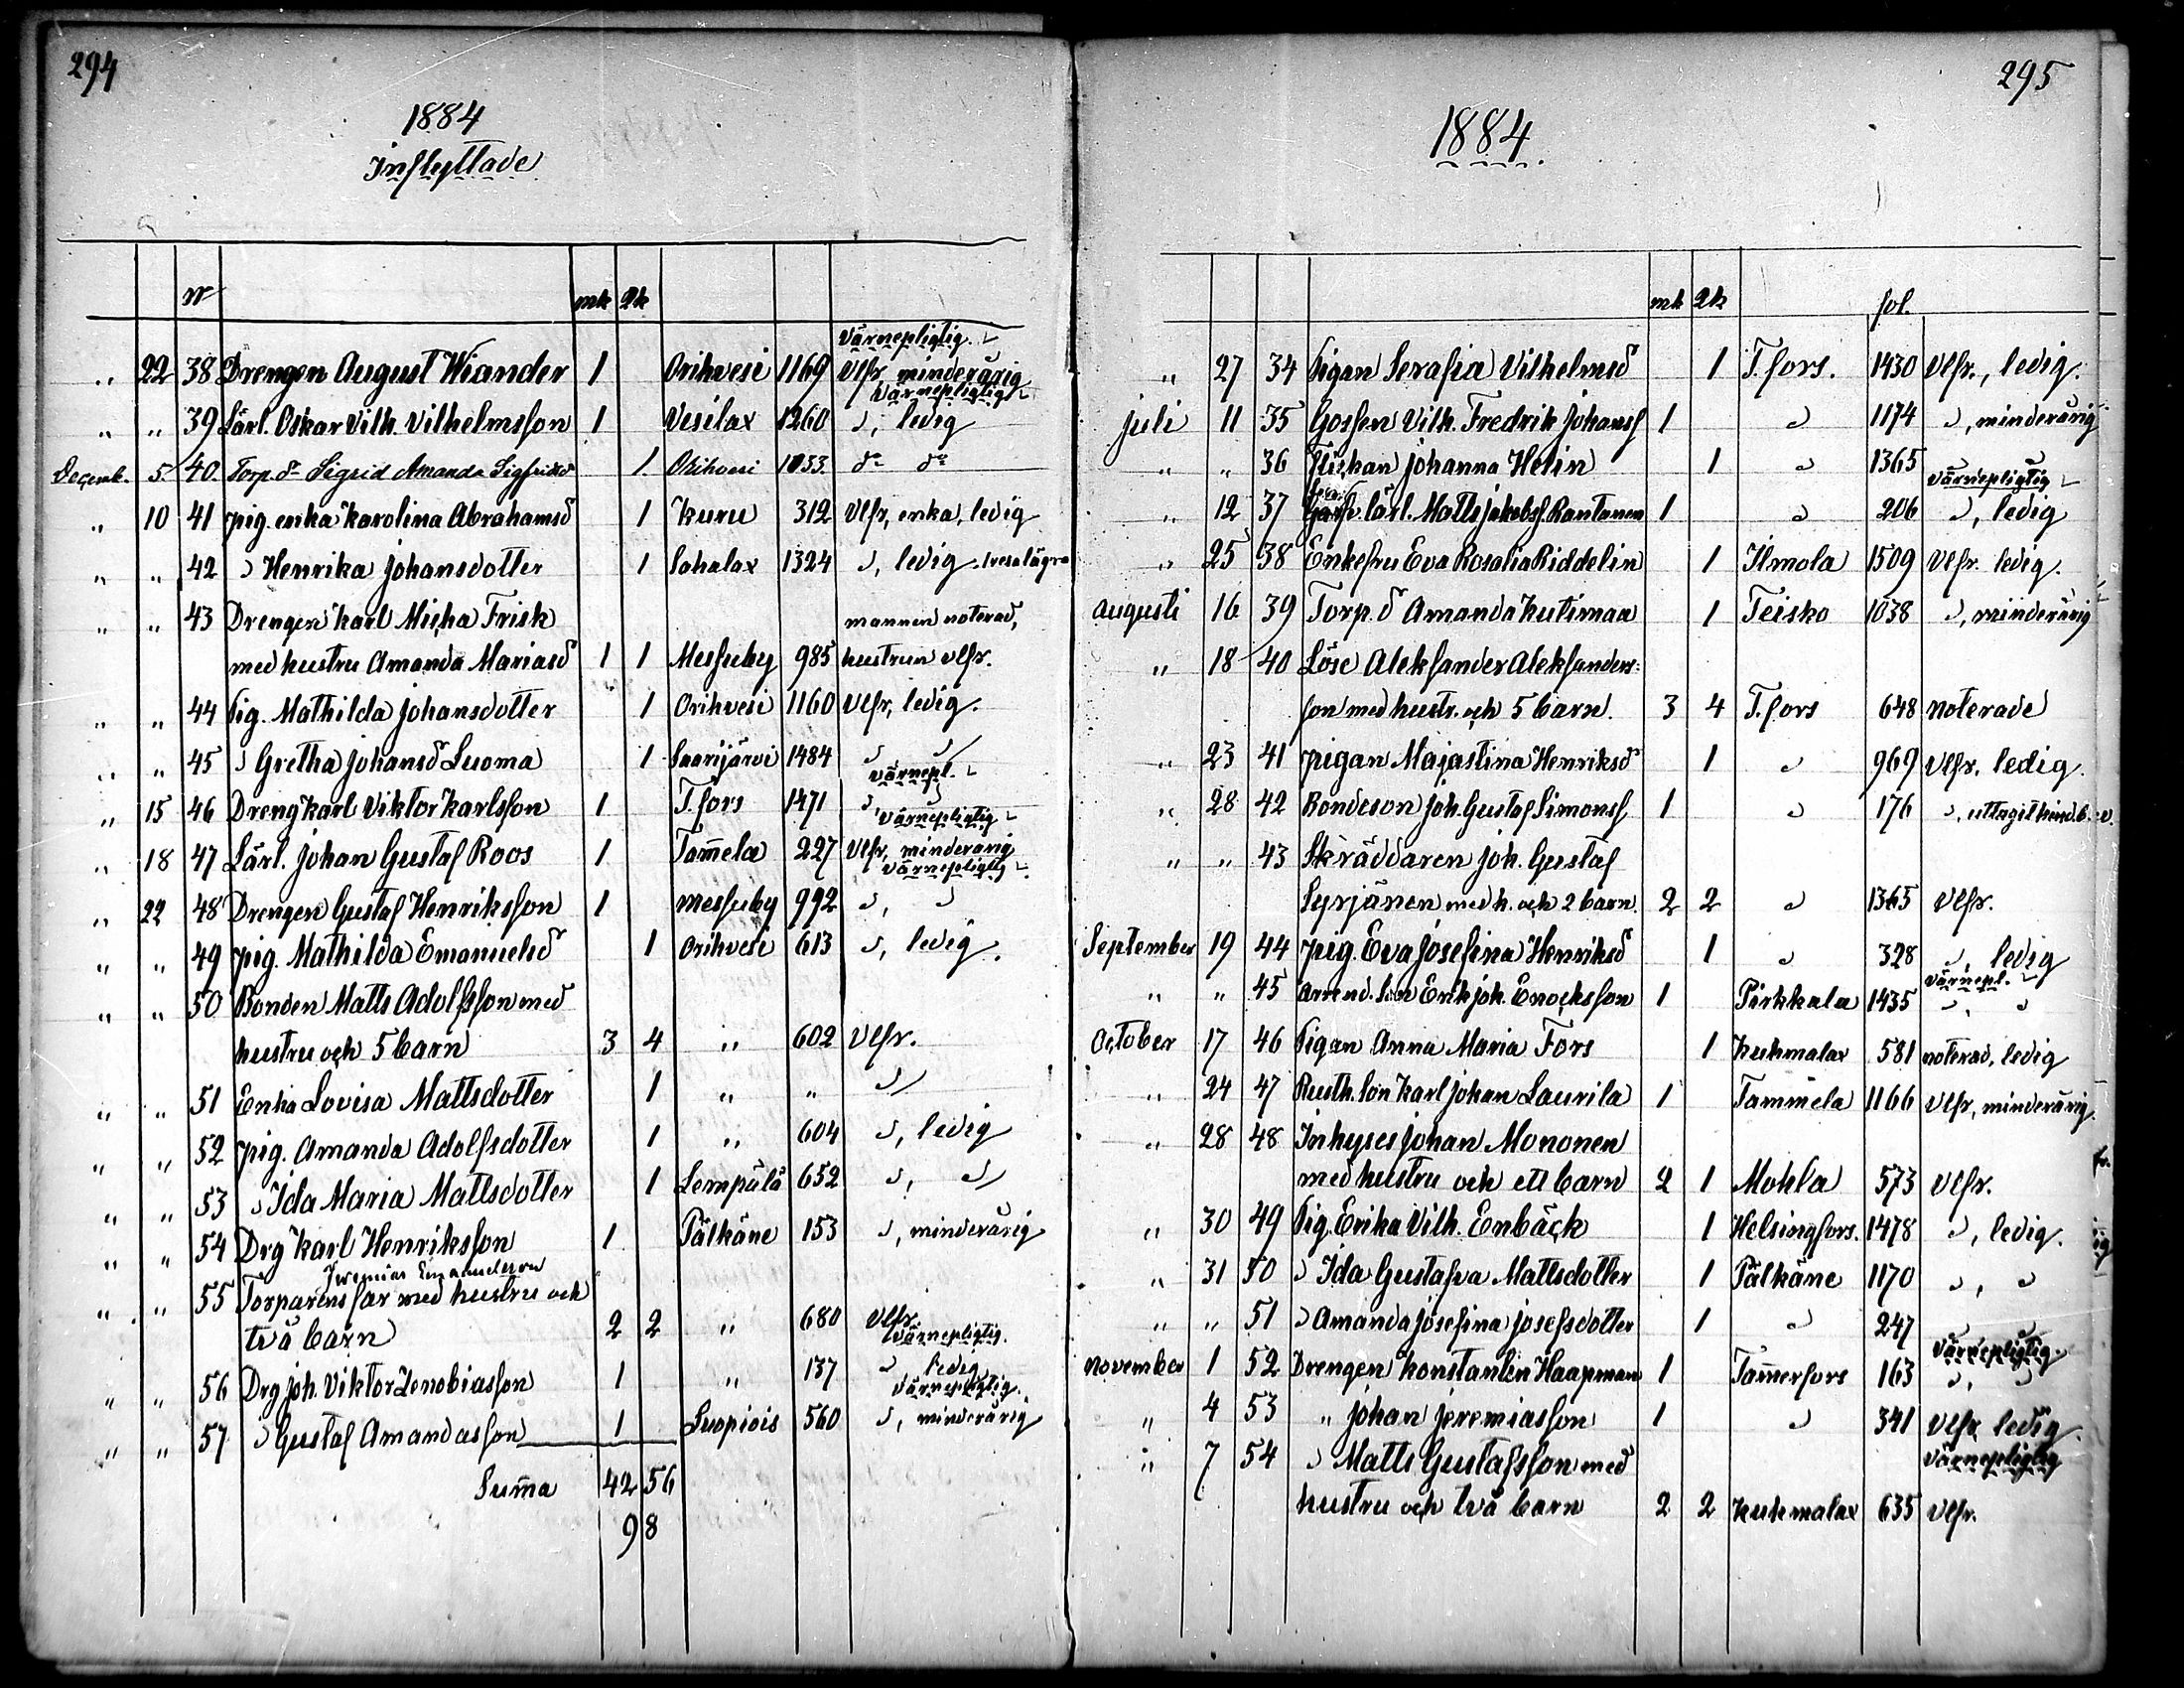 294
1884
Inflyttade
N mk qk
„ 22 38 Drengen August Wiander 1 Orihvesi 1169 Värnepligtig. Vlfr minderårig
„ „ 39 Lärl. Oskar Vilh. Vilhelmsson 1 Vesilax 1260 Värnepligtig „, ledig
Decemb. 5. 40. Torp.dr Sigrid Amanda Sigfridsd 1 Orihvesi 1033 do do
„ 10 41 pig. enka Karolina Abrahamsd 1 Kuru 312 Vlfr, enka, ledig
„ „ 42 „ Henrika Johansdotter 1 Sahalax 1324 „, ledig
„ „ 43 Drengen Karl Micha Frisk mannen noterad,
med hustru Amanda Mariasd 1 1 Messuby 985 hustrun vlfr.
„ „ 44 Pig. Mathilda Johansdotter 1 Orihvesi 1160 Vlfr, ledig.
„ „ 45 „ Gretha Johansd Luoma 1 Saarijärvi 1484 „ „
„ 15 46 Dreng Karl Viktor Karlsson 1 T.fors 1471 värnepl. „ „
„ 18 47 Lärl. Johan Gustaf Roos 1 Tam̄ela 227 Värnepligtig Vlfr, minderårig
„ 22 48 Drengen Gustaf Henriksson 1 Messuby 992 Värnepligtig „, „
„ „ 49 pig. Mathilda Emanuelsd 1 Orihvesi 613 „, ledig.
„ „ 50 Bonden Matts Adolfsson med
hustru och 5 barn 3 4 „ 602 Vlfr.
„ „ 51 Enka Lovisa Mattsdotter 1 „ „ „
„ „ 52 pig. Amanda Adolfsdotter 1 „ 604 „, ledig
„ „ 53 „ Ida Maria Mattsdotter 1 Lempälä 652 „, „
„ „ 54 Drg Karl Henriksson 1 Pälkäne 153 „, minderårig
Jeremias Emanuelsson
„ „ 55 Torparens far med hustru och
två barn 2 2 „ 680 Vlfr.
„ „ 56 Drg joh. Viktor Zenobiasson 1 „ 137 Värnepligtig. „ ledig
„ „ 57 „ Gustaf Amandasson 1 Luopiois 560 Värnepligtig. „, minderårig
Sum̄a 42 56
98
295
1884
mk qk fol.
„ 27 34 Pigan Serafia Vilhelmsd 1 T.fors. 1430 Vlfr., ledig.
juli 11 35 Gossen Vilh. Fredrik Johanss 1 „ 1174 „, minderårig
„ „ 36 Flickan Johanna Helin 1 „ 1365 „ „
„ 12 37 lärl. Matts Jakobss. Rantanen 1 „ 206 Värnepligtig „, ledig
„ 25 38 Enkefru Eva Rosalia Riddelin 1 Ilmola 1509 Vlfr. ledig.
augusti 16 39 Torp.d Amanda Kutimaa 1 Teisko 1038 „, minderårig
„ 18 40 Löse Aleksander Aleksanders-
son med hustr. och 5 barn. 3 4 T.fors 648 noterade
„ 23 41 pigan Majastina Henriksd 1 „ 969 Vlfr. ledig.
„ 28 42 Bondeson Joh. Gustaf Simonss 1 „ 176 „, uttagit hind.b.
„ „ 43 Skräddaren Joh. Gustaf
Syrjänen med h. och 2 barn. 2 2 „ 1365 Vlfr.
September 19 44 pig. Eva Josefina Henriksd 1 „ 328 „, ledig
„ „ 45 arrend. Son Erik joh. Enocksson 1 Pirkkala 1435 Värnepl. „, „
October 17 46 Pigan Anna Maria Fors 1 Kuhmalax 581 noterad, ledig
„ 24 47 Rusth. son Karl Johan Laurila 1 Tammela 1166 Vlfr, minderårig.
„ 28 48 Inhyses Johan Mononen
med hustru och ett barn 2 1 Mohla 573 Vlfr.
„ 30 49 Pig. Erika Vilh. Enbäck 1 Helsingfors. 1478 „, ledig.
„ 31 50 „ Ida Gustafva Mattsdotter 1 Pälkäne 1170 „, „
„ „ 51 „ Amanda Josefina Josefsdotter 1 „ 247 „ „
november 1 52 Drengen Konstantin Haapman 1 Tam̄erfors 163 Värnepligtig. „, „
„ 4 53 „ Johan Jeremiasson 1 „ 341 Vlfr ledig.
„ 7 54 „ Matts Gustafsson med Värnepligtig
hustru och två barn 2 2 Kuhmalax 635 Vlfr.